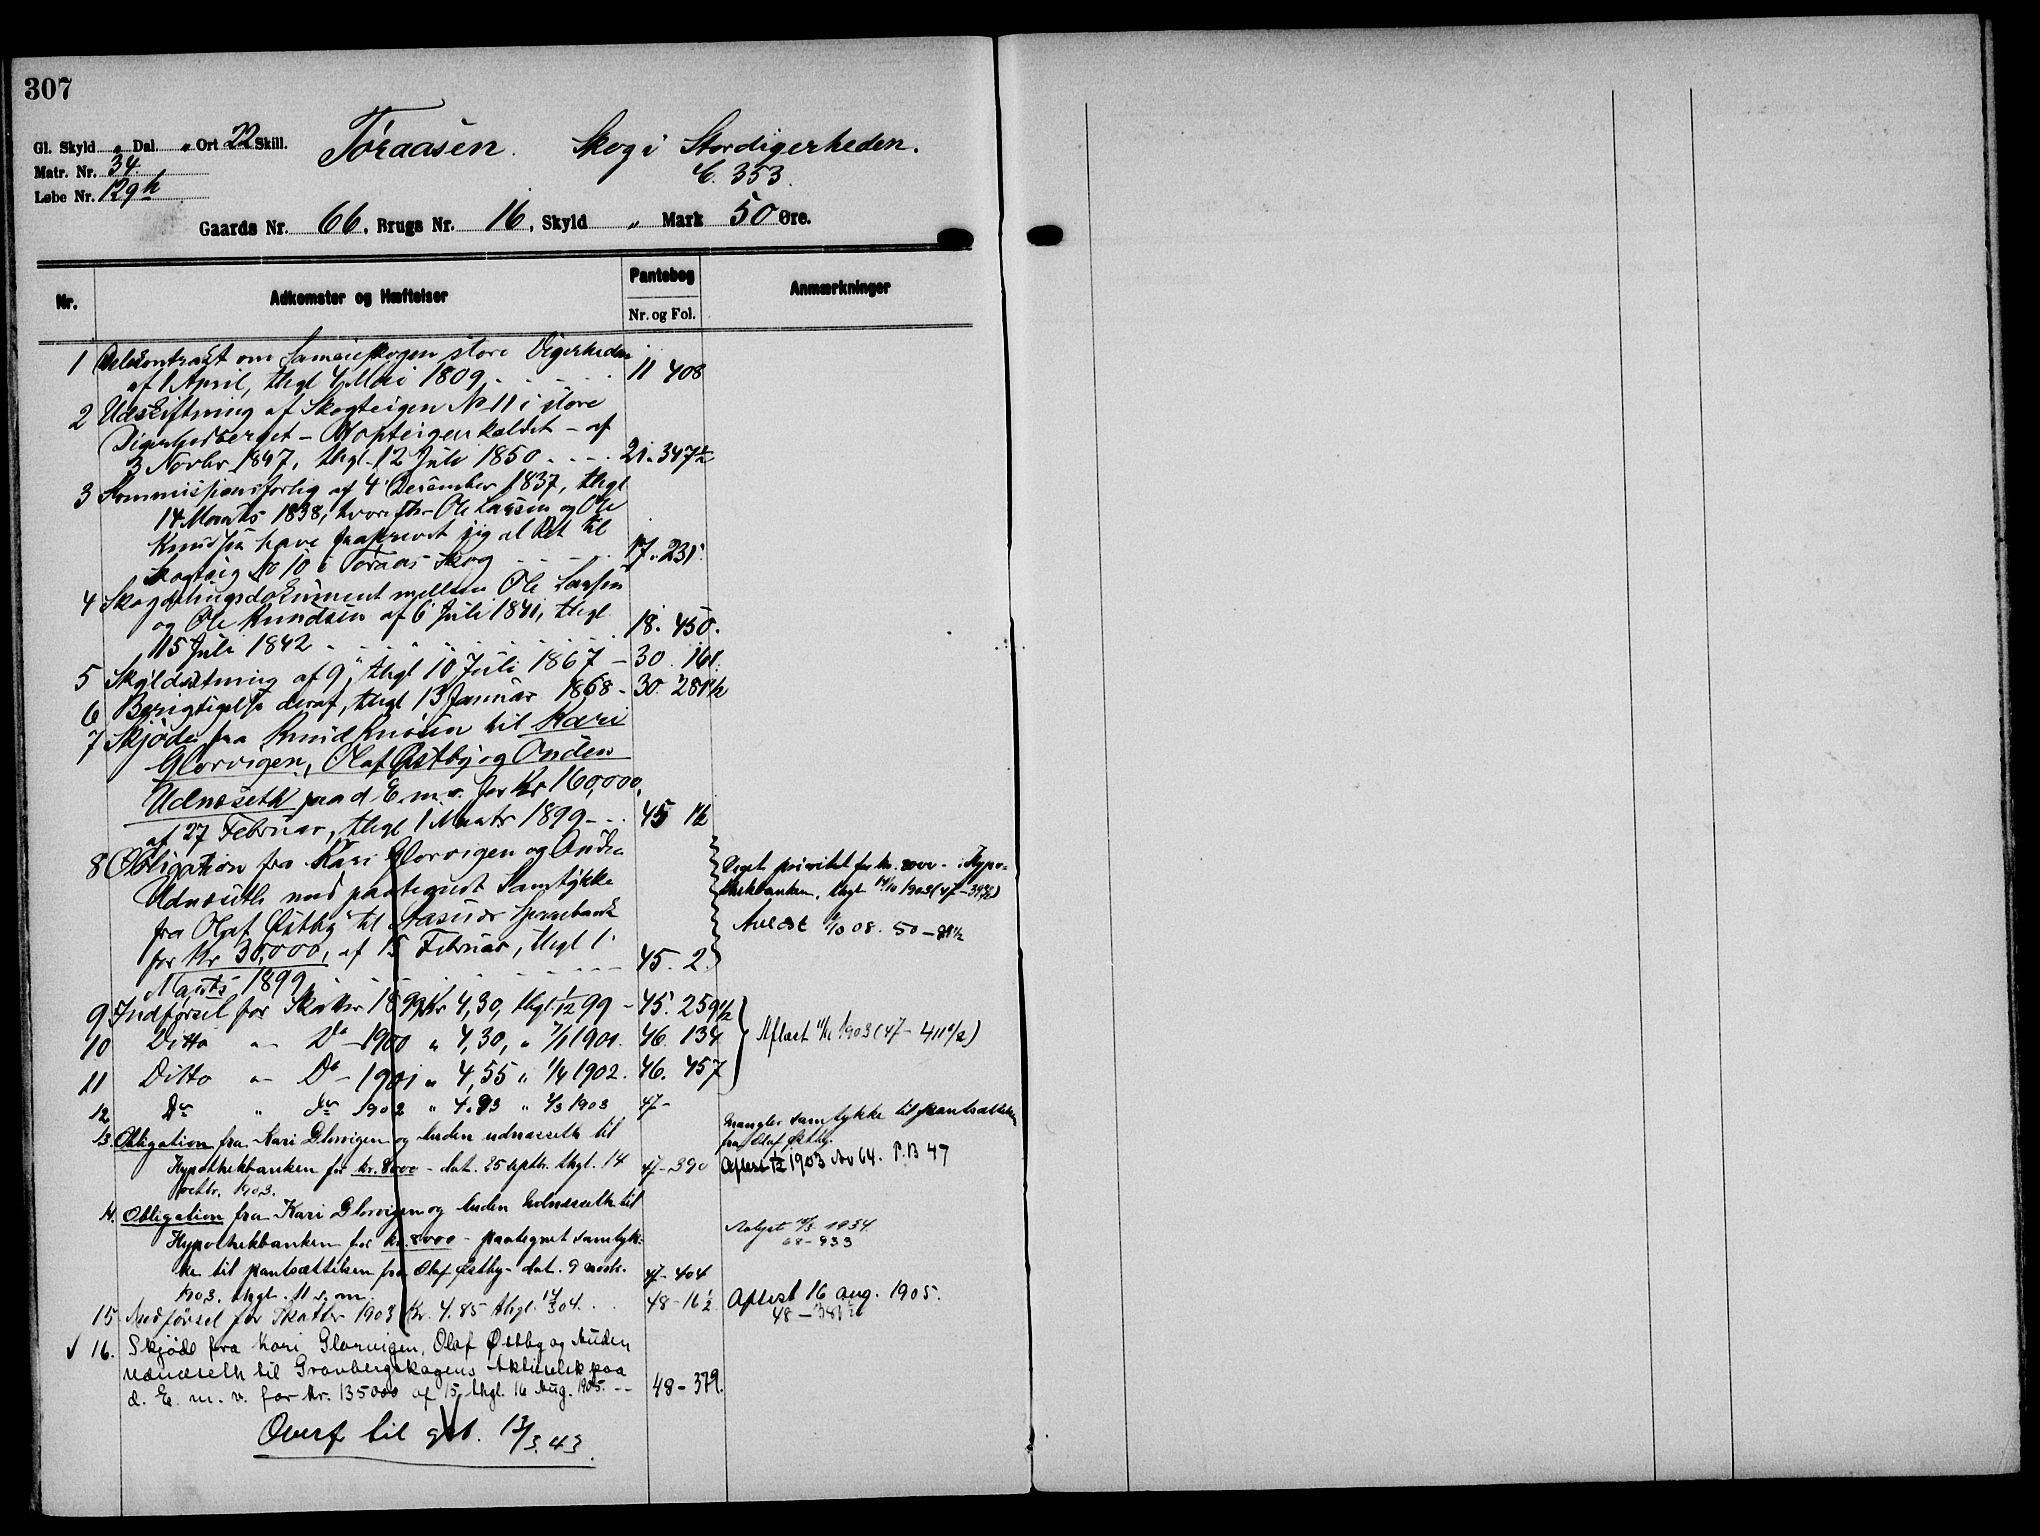 307
Gl. Skyld „ Dal. „ Ort 22 Skill.
Matr. Nr. 34
Løbe Nr. 129h
Tøraasen. Skog i Stordigerheden.
C. 353.
Gaards Nr. 66, Brugs Nr. 16, Skyld „ Mark 50 Øre.
Nr. Adkomster og Hæftelser Pantebog Nr. og Fol. Anmærkninger
1 Delekontrakt om Sameieskogen store Digerheden
af 1 April, thgl 4 Mai 1809 11 408
2 Udskiftning af Skogteigen No 11 i store
Digerhedberget - kaldet - af
3 Novbr 1847, thgl. 12 Juli 1850 21. 347 1/2
3 Kommissionsforlig af 4 December 1837, thgl
14 Marts 1838, hvorefter Ole Larsen og Ole
Knudsen have fraskrevet sig al Ret til
Skogteig No 10 i Toraas Skog 17. 231.
4 Skogdelingsdokument mellem Ole Larsen
og Ole Knudsen af 6 Juli 1841, thgl
15 Juli 1842 18. 450.
5 Skyldsætning af 9, thgl 10 Juli 1867 - 30. 161.
6 Berigtigelse deraf, thgl 13 Januar 1868 - 30. 281 1/2
7 Skjøde fra Knud Knösen til Kari
Glorvigen, Olaf Østby og Anden
Udnæseth paa d. E. m. v. for Kr 160,000,
af 27 Februar, thgl 1 Marts 1899 - 45 1 1/2
8 Obligation fra Kari Glorvigen og Anden
Udnæseth med paategnet Samtykke
fra Olaf Østby til Aasnes Sparebank
for Kr 30,000, af 15 Februar, thgl 1
Marts 1899 45. 2.
Veget prioritet for kr. 8000 - i Hypo-
thekbanken, thgl 14/10 1903 (47-391 1/2)
Avlæst /10 08. 50 - 89 1/2
9 Indførsel for Skatter 1899 Kr 4,30, thgl 1/12 99 - 45. 259 1/2
10 Ditto „ Do - 1900 „ 4,30, „ 7/1 1901. 46. 134
11 Ditto „ Do - 1901 „ 4,55 „ 1/4 1902. 46. 457
Aflæst 11/11 1903 (47 - 411 1/2)
12 Do „ do 1902 „ 4.93 „ 4/3 1903 47-
13. Obligation fra Kari Glorvigen og Anden Udnæseth til
Hypothekbanken for kr. 8000 - dat. 25 septbr. thgl. 14 47-390
octbr. 1903.
Mangler samtykke til pantsættelsen
fra Olaf Østby.
Aflæst 1903 No 64. P.B 47
14. Obligation fra Kari Glorvigen og Anden Udnæseth til
Hypothekbanken for kr. 8000 - paategnet samtyk-
ke til pantsættelsen fra Olaf Østby - dat. 9 novbr. 47-404
1903. thgl. 11 s. m.
Avlyst /3 1934.
68-933
15. Indførsel for Skatter 1903 Kr. 4.85 thgl. 14/3 04. 48-16 1/2 Aflæst 16 aug. 1905.
48 - 381 1/2
✓ 16. Skjøde fra Kari Glorvigen, Olaf Østby og Anden
Udnæseth til Gravbergskogens Aktieselsk. paa
d. E. m. v. for kr. 135000 af 15, thgl. 16 Aug. 1905. -- 48-379.
Overf til gbl. 13/3.43.